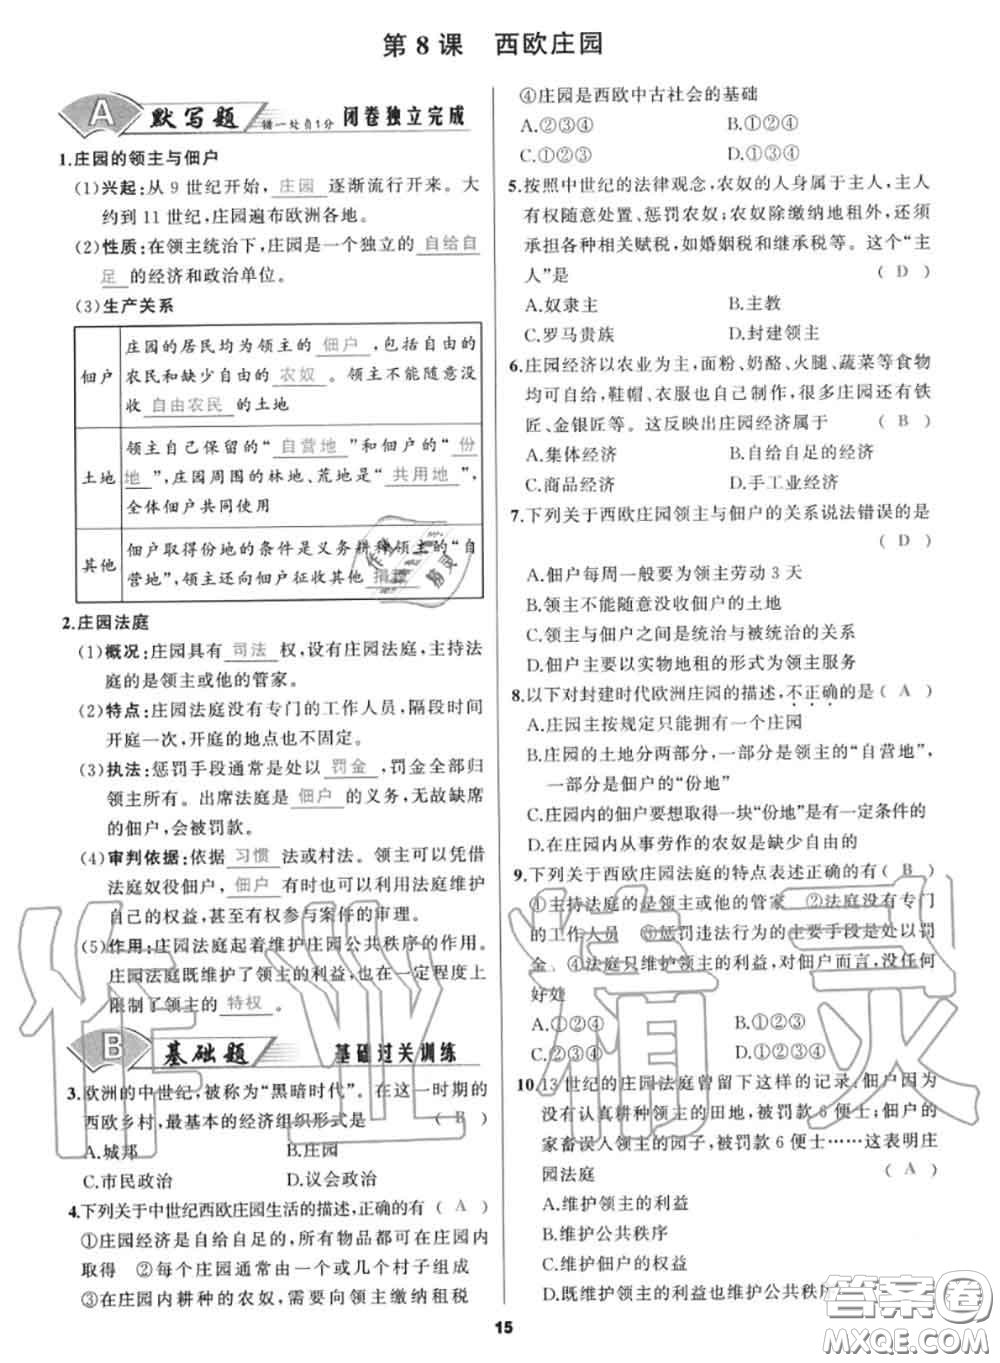 第8课 西欧庄园
A 默写题 错一处自1分 闭卷独立完成
1.庄园的领主与佃户
(1)兴起:从9世纪开始,庄园逐渐流行开来。大
约到11世纪,庄园遍布欧洲各地。
(2)性质:在领主统治下,庄园是一个独立的自给自
足的经济和政治单位。
(3)生产关系
佃户
庄园的居民均为领主的佃户,包括自由的
农民和缺少自由的农奴。领主不能随意没
收自由农民的土地
土地
领主自己保留的“自营地”和佃户的“份
地”,庄园周围的林地、荒地是“共用地”,
全体佃户共同使用
其他
佃户取得份地的条件是义务耕种领主的“自
营地”,领主还向佃户征收其他捐税
2.庄园法庭
(1)概况:庄园具有司法权,设有庄园法庭,主持法
庭的是领主或他的管家。
(2)特点:庄园法庭没有专门的工作人员,隔段时间
开庭一次,开庭的地点也不固定。
(3)执法:惩罚手段通常是处以罚金,罚金全部归
领主所有。出席法庭是佃户的义务,无故缺席
的佃户,会被罚款。
(4)审判依据:依据习惯法或村法。领主可以凭借
法庭奴役佃户,佃户有时也可以利用法庭维护
自己的权益,甚至有权参与案件的审理。
(5)作用:庄园法庭起着维护庄园公共秩序的作用。
庄园法庭既维护了领主的利益,也在一定程度上
限制了领主的特权。
B 基础题 基础过关训练
3.欧洲的中世纪,被称为“黑暗时代”。在这一时期的
西欧乡村,最基本的经济组织形式是 (B)
A.城邦 B.庄园
C.市民政治 D.议会政治
4.下列关于中世纪西欧庄园生活的描述,正确的有 (A)
①庄园经济是自给自足的,所有物品都可在庄园内
取得 ②每个庄园通常由一个或几个村子组成
③在庄园内耕种的农奴,需要向领主缴纳租税
④庄园是西欧中古社会的基础
A.②③④ B.①②④
C.①②③ D.①③④
5.按照中世纪的法律观念,农奴的人身属于主人,主人
有权随意处置、惩罚农奴;农奴除缴纳地租外,还须
承担各种相关赋税,如婚姻税和继承税等。这个“主
人”是 (D)
A.奴隶主 B.主教
C.罗马贵族 D.封建领主
6.庄园经济以农业为主,面粉、奶酪、火腿、蔬菜等食物
均可自给,鞋帽、衣服也自己制作,很多庄园还有铁
匠、金银匠等。这反映出庄园经济属于 (B)
A.集体经济 B.自给自足的经济
C.商品经济 D.手工业经济
7.下列关于西欧庄园领主与佃户的关系说法错误的是
(D)
A.佃户每周一般要为领主劳动3天
B.领主不能随意没收佃户的土地
C.领主与佃户之间是统治与被统治的关系
D.佃户主要以实物地租的形式为领主服务
8.以下对封建时代欧洲庄园的描述,不正确的是(A)
A.庄园主按规定只能拥有一个庄园
B.庄园的土地分两部分,一部分是领主的“自营地”,
一部分是佃户的“份地”
C.庄园内的佃户要想取得一块“份地”是有一定条件的
D.在庄园内从事劳作的农奴是缺少自由的
9.下列关于西欧庄园法庭的特点表述正确的有(B)
①主持法庭的是领主或他的管家 ②法庭没有专门
的工作人员 ③惩罚违法行为的主要手段是处以罚
金 ④法庭只维护领主的利益,对佃户而言,没任何
好处
A.①②④ B.①②③
C.②③④ D.①③④
10.13世纪的庄园法庭曾留下这样的记录,佃户因为
没有认真耕种领主的田地,被罚款6便士;佃户的
家畜误入领主的园子,被罚款6便士……这表明庄
园法庭 (A)
A.维护领主的利益
B.维护公共秩序
C.维护佃户的权益
D.既维护领主的利益也维护公共秩序
15
作业精灵
作业精灵
答案圈
MXQE.COM